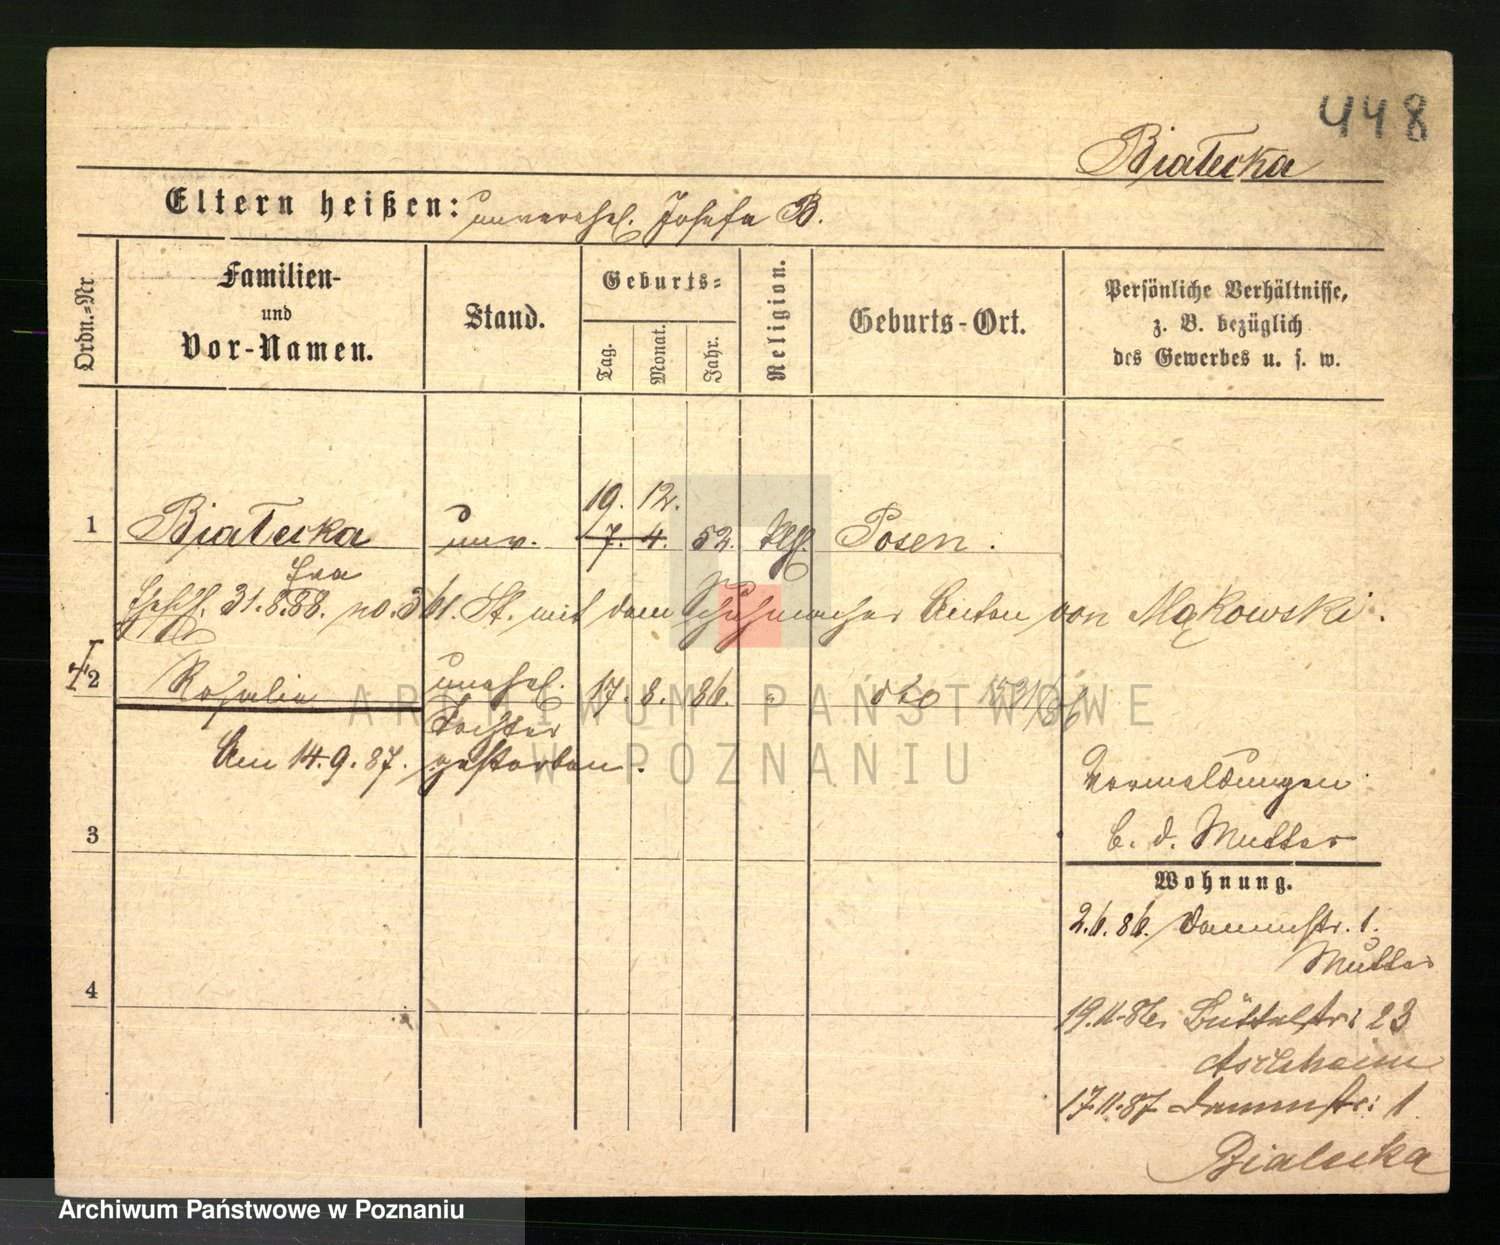 448
Białecka
Eltern heißen: unverehel. Josefa B.
Ordn.-Nr
Familien-
und
Vor-Namen.
Stand.
Geburts-
Tag.
Monat.
Jahr.
Religion.
Geburts-Ort.
Persönliche Verhältnisse,
z. B. bezüglich
des Gewerbes u. s. w.
19. 12.
1 Białecka unv. 7. 4. 52. kath. Posen.
Eva
31.8.88. no. 361. St. mit dem Schuhmacher Anton von Mąkowski.
2 Rosalie unehel. 17. 8. 86. dto
Tochter
Am 14.9.87. gestorben.
Vermeldungen
b. d. Mutter
3
Wohnung.
2.6.86. Dammstr. 1.
Mutter
4
19.11.86. Büttelstr: 23
Aschheim
17.11.87 Dammstr: 1
Białecka
ARCHIWUM PAŃSTWOWE
W POZNANIU
Archiwum Państwowe w Poznaniu